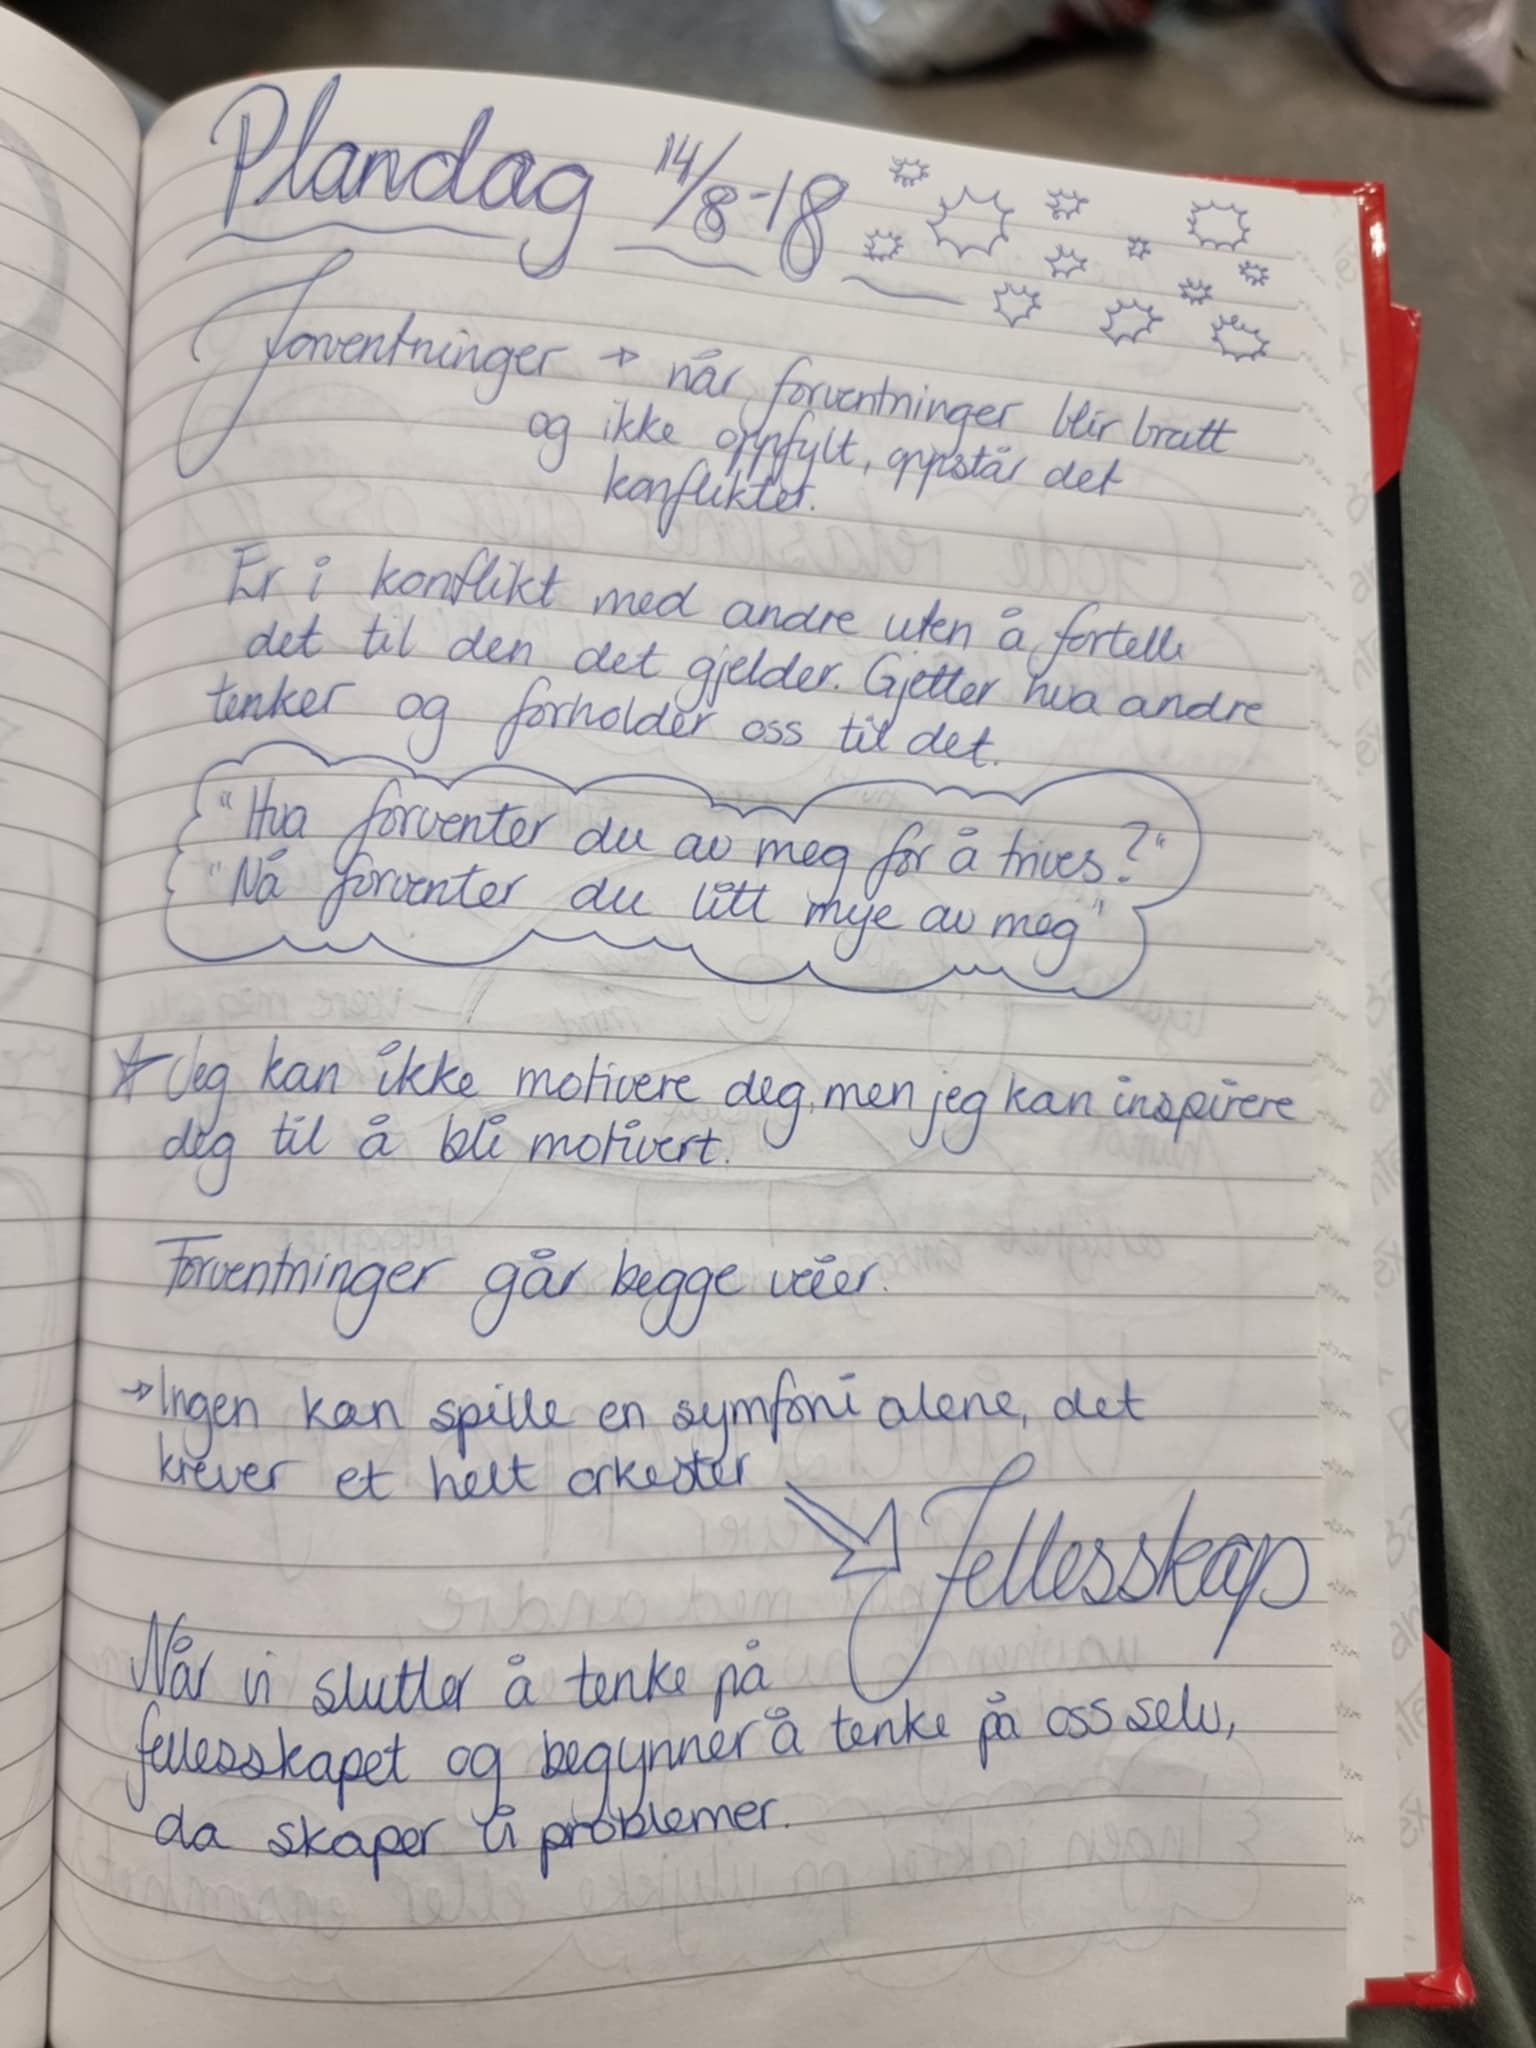 Plandag 14/8-18
Forventninger → når forventninger blir brutt
og ikke oppfylt, oppstår det
konflikter.
Er i konflikt med andre uten å fortelle
det til den det gjelder. Gjetter hva andre
tenker og forholder oss til det.
"Hva forventer du av meg for å trives?"
"Nå forventer du litt mye av meg"
☆ Jeg kan ikke motivere deg, men jeg kan inspirere
deg til å bli motivert.
Forventninger går begge veier.
→ Ingen kan spille en symfoni alene, det
krever et helt orkester
Fellesskap
Når vi slutter å tenke på
fellesskapet og begynner å tenke på oss selv,
da skaper vi problemer.